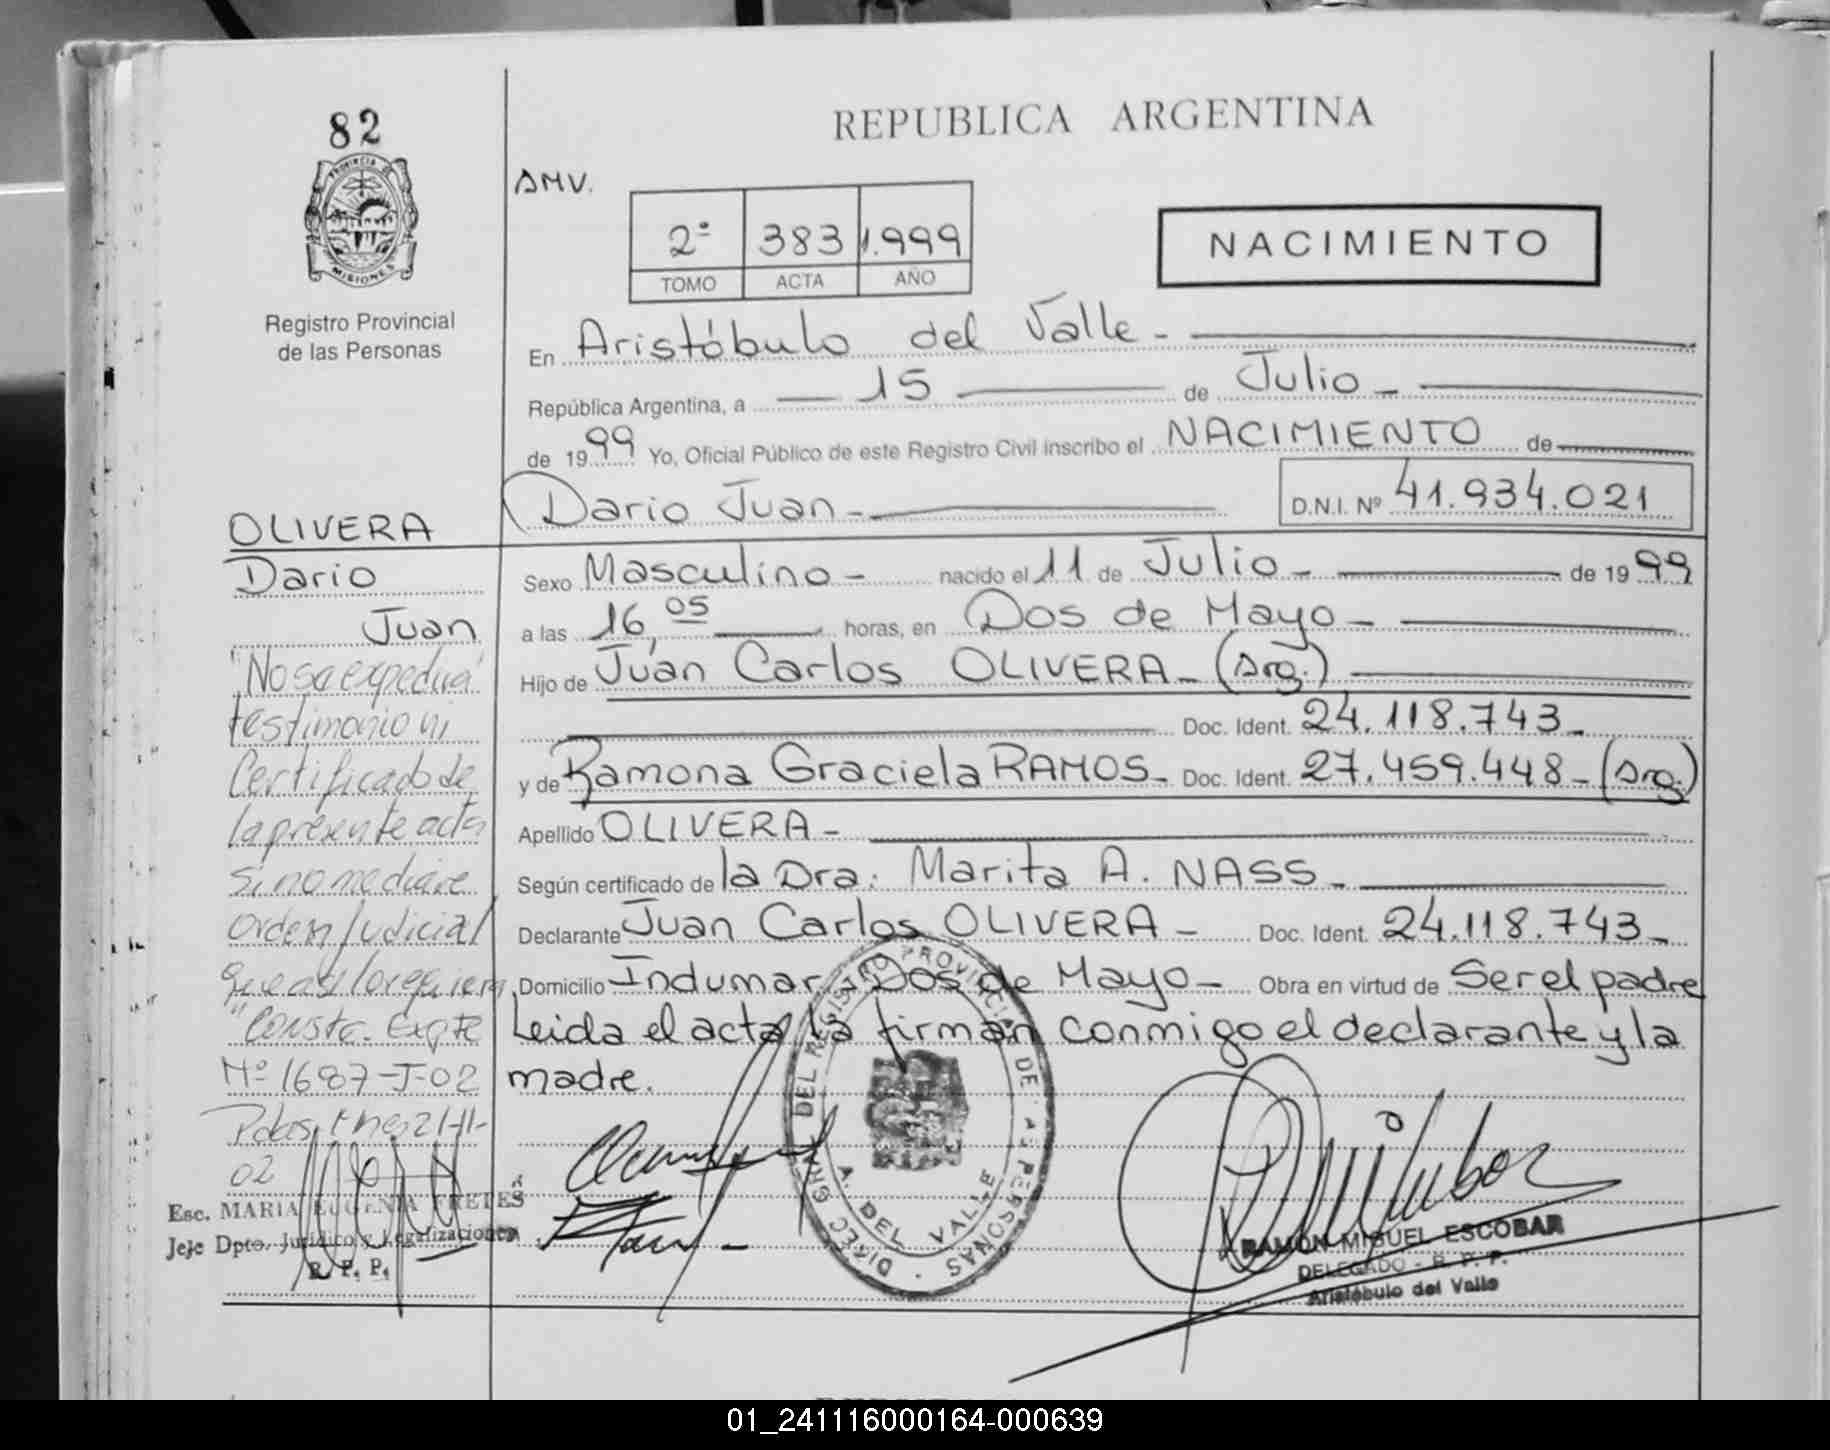 82
PROVINCIA DE
MISIONES
Registro Provincial
de las Personas
REPUBLICA ARGENTINA
AMV.
2º 383 1.999
TOMO ACTA AÑO
NACIMIENTO
En Aristóbulo del Valle -
República Argentina, a 15 de Julio -
de 1999 Yo, Oficial Público de este Registro Civil inscribo el NACIMIENTO de
Dario Juan - D.N.I. Nº 41.934.021
Sexo Masculino - nacido el 11 de Julio - de 1999
a las 16,05 horas, en Dos de Mayo -
Hijo de Juan Carlos OLIVERA - (Arg.)
Doc. Ident. 24.118.743 -
y de Ramona Graciela RAMOS - Doc. Ident. 27.459.448 - (Arg.)
Apellido OLIVERA -
Según certificado de la Dra: Marita A. NASS -
Declarante Juan Carlos OLIVERA - Doc. Ident. 24.118.743 -
Domicilio Indumar - Dos de Mayo - Obra en virtud de Ser el padre
Leida el acta la firman conmigo el declarante y la
madre.
OLIVERA
Dario
Juan
"No se expedirá
testimonio ni
Certificado de
la presente acta
si no mediare
orden Judicial
que asi lo requiera
" Consta. Expte
Nº 1687-J-02
Pdas, 21-11-
02
Esc. MARIA EUGENIA FRETES
Jefe Dpto. Jurídico y Legalizaciones
R. P. P.
DIREC GRAL DEL REGISTRO PROVINCIAL DE LAS PERSONAS
A. DEL VALLE
RAMON MIGUEL ESCOBAR
DELEGADO - R. P. P.
Aristóbulo del Valle
01_241116000164-000639